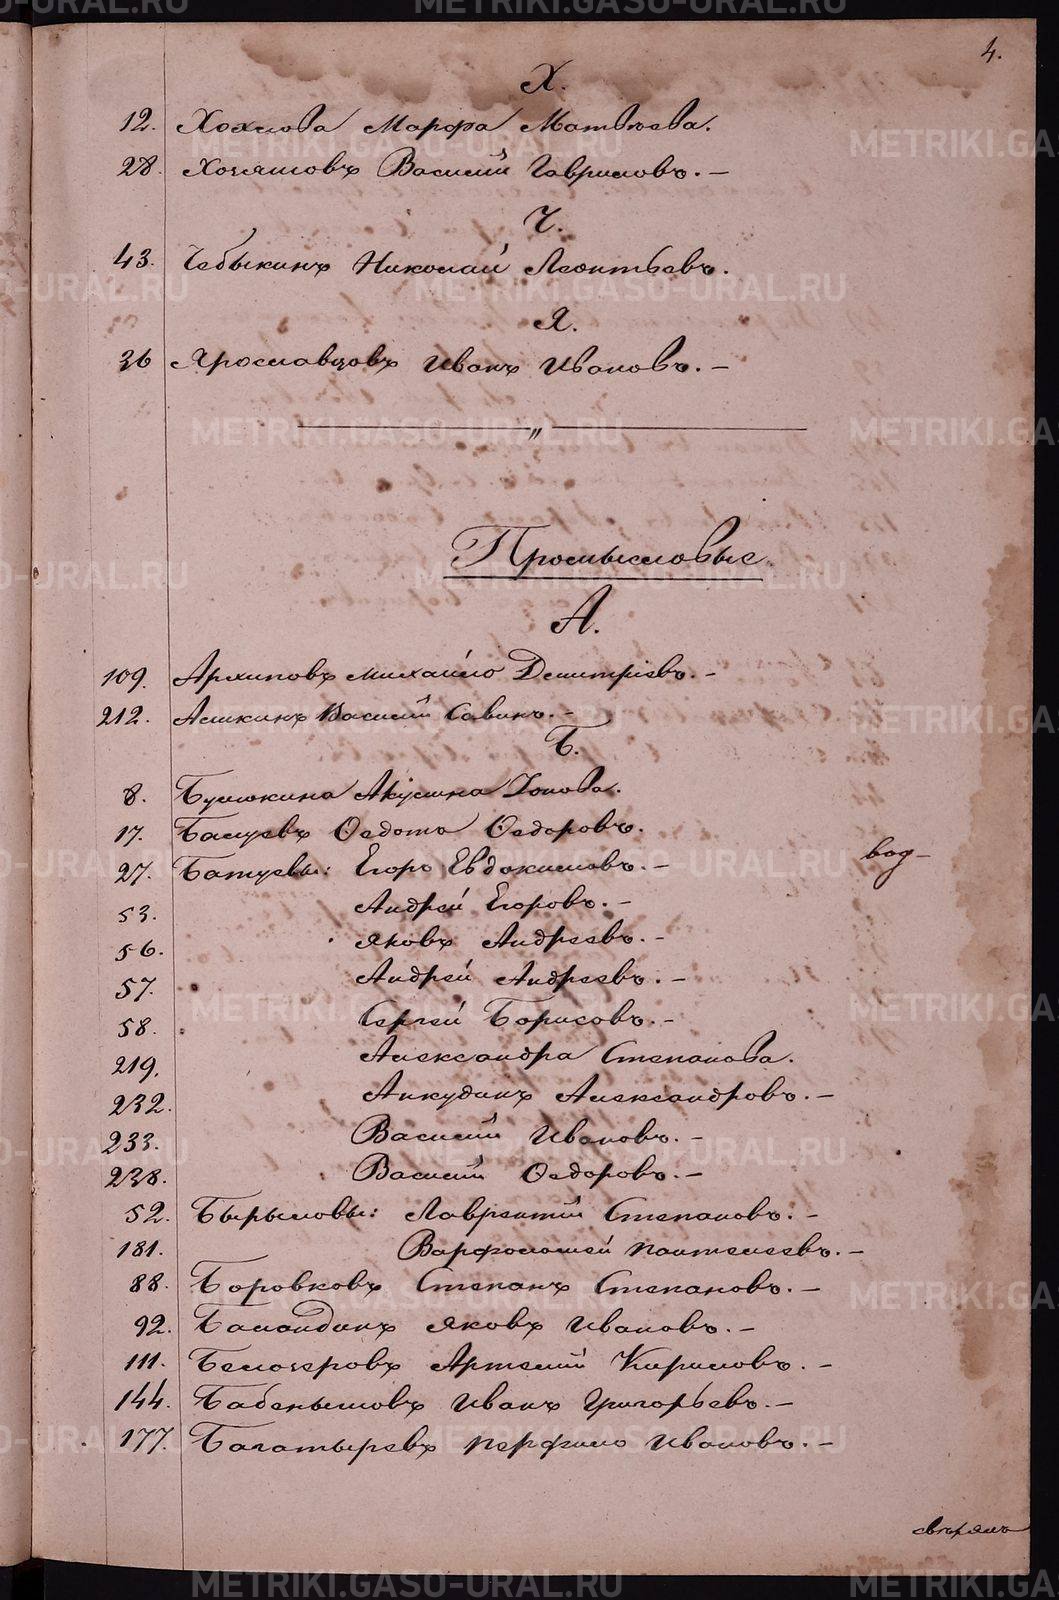 4.
Х.
12. Хохлова Марфа Матвѣева.
28. Хозяшовъ Василій Гавриловъ. –
Ч.
43. Чебыкинъ Николай Леонтьевъ.
Я.
36 Ярославцовъ Иванъ Ивановъ. –
Промысловые
А.
109. Архиповъ Михайло Дмитріевъ. –
212. Ашкинъ Василій Савинъ. –
Б.
8. Булыкина Акулина Іонова.
17. Балуевъ Ѳедотъ Ѳедоровъ.
27. Батуевы: Егоръ Евдокимовъ. –
53. Андрей Егоровъ. –
56. Яковъ Андреевъ. –
57. Андрей Андреевъ. –
58. Сергей Борисовъ. –
219. Александра Степанова.
232. Анкудинъ Александровъ. –
233. Василій Ивановъ. –
238. Василій Ѳедоровъ. –
52. Бырыловы: Лаврентій Степановъ. –
181. Варфоломей Пантелеевъ. –
88. Боровковъ Степанъ Степановъ. –
92. Баландинъ Яковъ Ивановъ. –
111. Белозеровъ Артемій Кириловъ. –
144. Бабенышовъ Иванъ Григорьевъ. –
177. Багатыревъ Перфило Ивановъ. –
METRIKI.GASO-URAL.RU